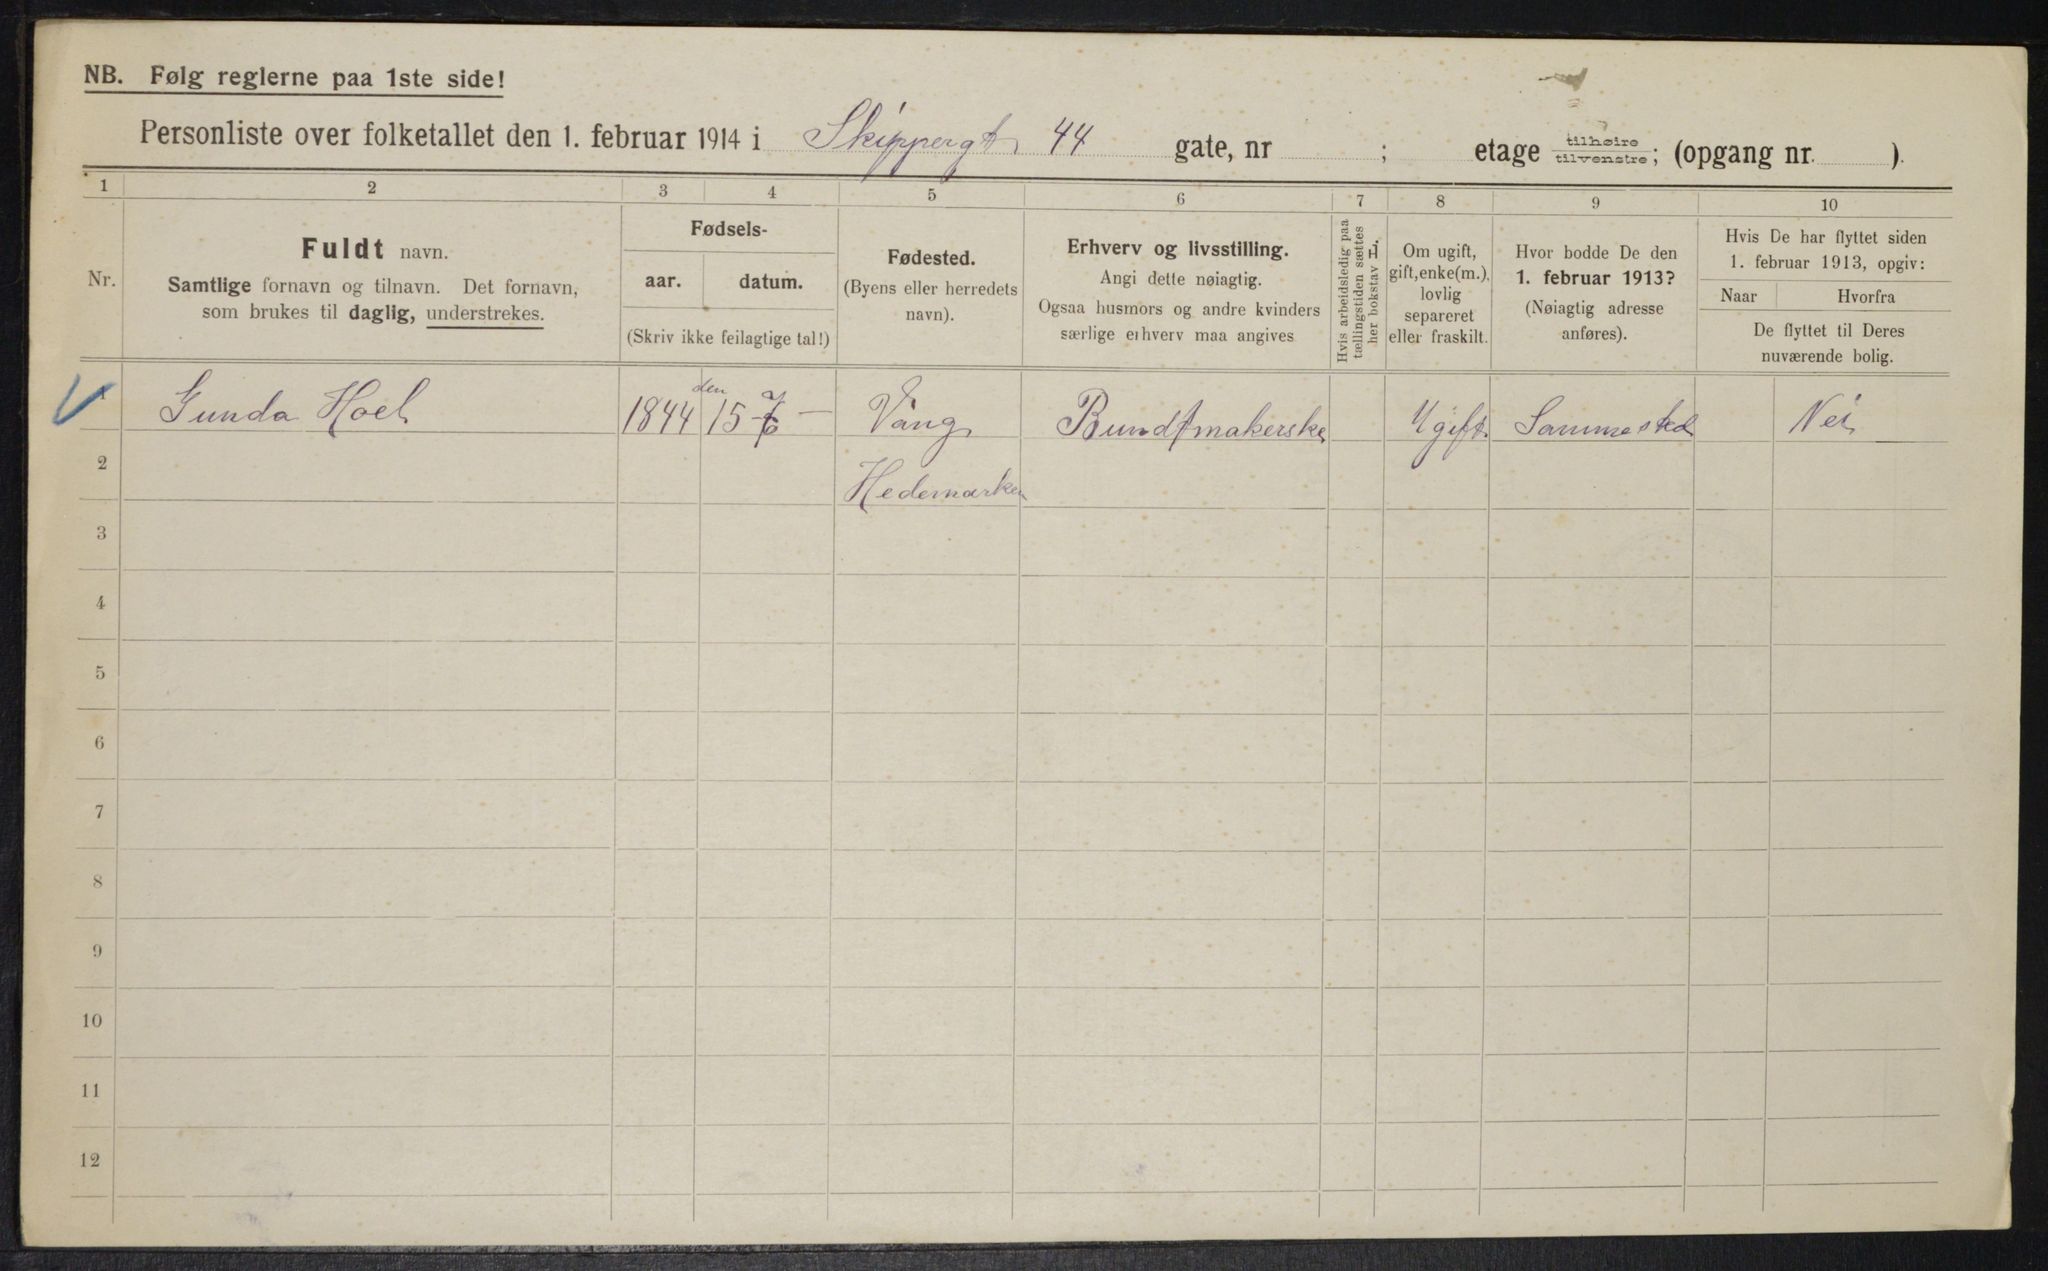 NB. Følg reglerne paa 1ste side!
Personliste over folketallet den 1. februar 1914 i Skippergt 44 gate, nr ; etage tilhøire tilvenstre; (opgang nr. ).
1 2 3 4 5 6 7 8 9 10
Nr.
Fuldt navn.
Samtlige fornavn og tilnavn. Det fornavn,
som brukes til daglig, understrekes.
Fødsels-
aar. datum.
(Skriv ikke feilagtige tal!)
Fødested.
(Byens eller herredets
navn).
Erhverv og livsstilling.
Angi dette nøiagtig.
Ogsaa husmors og andre kvinders
særlige erhverv maa angives
Hvis arbeidsledig paa
tællingstiden sættes
her bokstav L.
Om ugift,
gift, enke(m.),
lovlig
separeret
eller fraskilt.
Hvor bodde De den
1. februar 1913?
(Nøiagtig adresse
anføres).
Hvis De har flyttet siden
1. februar 1913, opgiv:
Naar Hvorfra
De flyttet til Deres
nuværende bolig.
1 Gunda Hoel 1844 den 15 7 Vang Bundtmakerske Ugift Sammested Nei
2 Hedemarken
3
4
5
6
7
8
9
10
11
12